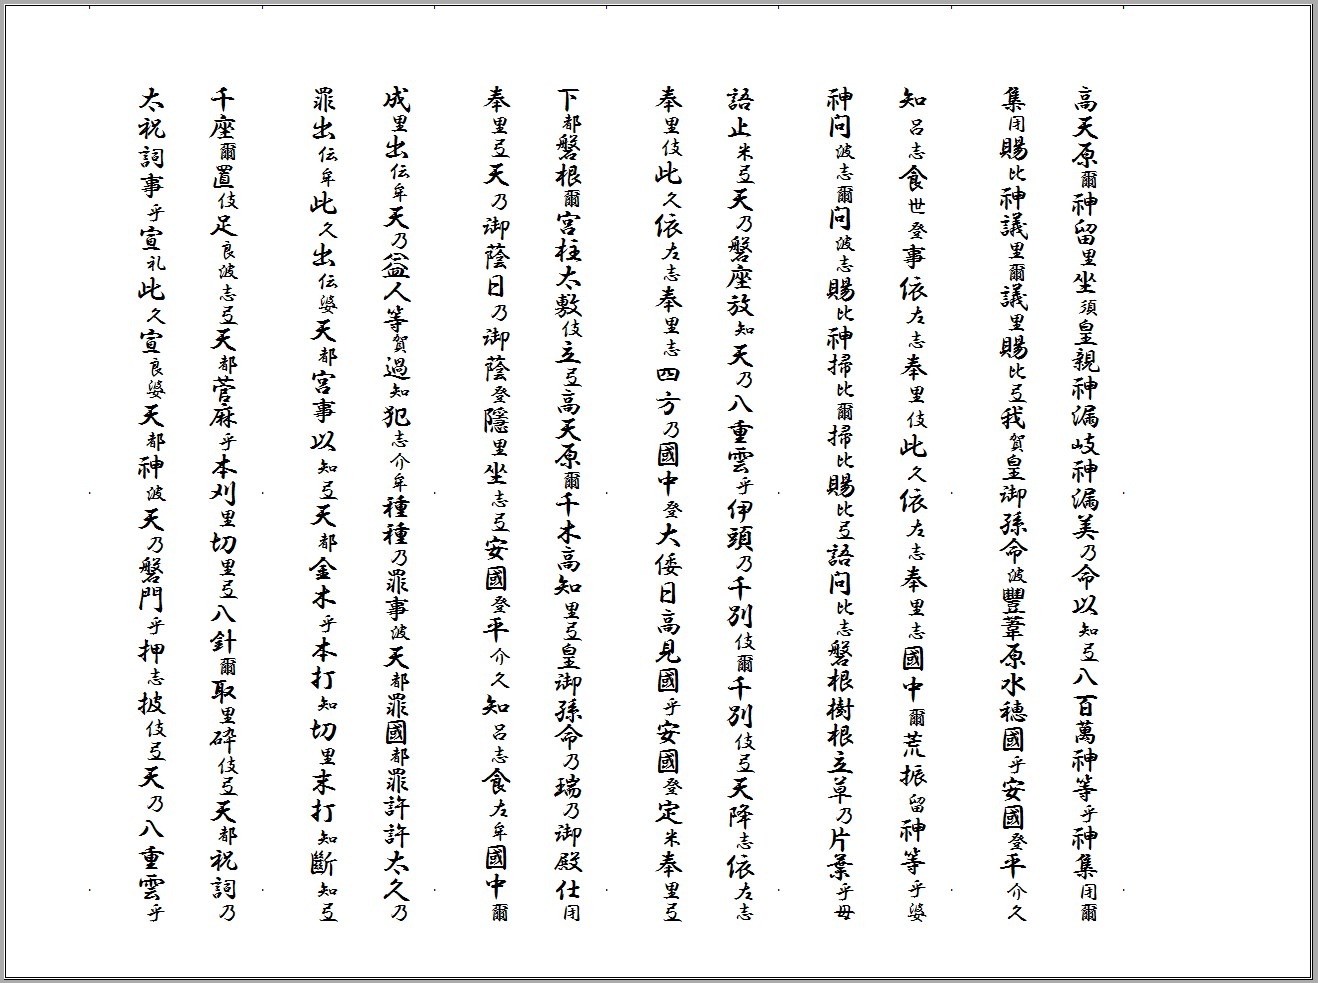 高天原爾神留里坐須皇親神漏岐神漏美乃命以知弖八百萬神等乎神集閇爾
集閇賜比神議里爾議里賜比弖我賀皇御孫命波豐葦原水穗國乎安國登平介久
知呂志食世登事依左志奉里伎此久依左志奉里志國中爾荒振留神等乎婆
神問波志爾問波志賜比神掃比爾掃比賜比弖語問比志磐根樹根立草乃片葉乎毋
語止米弖天乃磐座放知天乃八重雲乎伊頭乃千別伎爾千別伎弖天降志依左志
奉里伎此久依左志奉里志四方乃國中登大倭日高見國乎安國登定米奉里弖
下都磐根爾宮柱太敷伎立弖高天原爾千木高知里弖皇御孫命乃瑞乃御殿仕閇
奉里弖天乃御蔭日乃御蔭登隱里坐志弖安國登平介久知呂志食左牟國中爾
成里出伝牟天乃益人等賀過知犯志介牟種種乃罪事波天都罪國都罪許許太久乃
罪出伝牟此久出伝婆天都宮事以知弖天都金木乎本打知切里末打知斷知弖
千座爾置伎足良波志弖天都菅麻乎本刈里切里弖八針爾取里碎伎弖天都祝詞乃
太祝詞事乎宣礼此久宣良婆天都神波天乃磐門乎押志披伎弖天乃八重雲乎